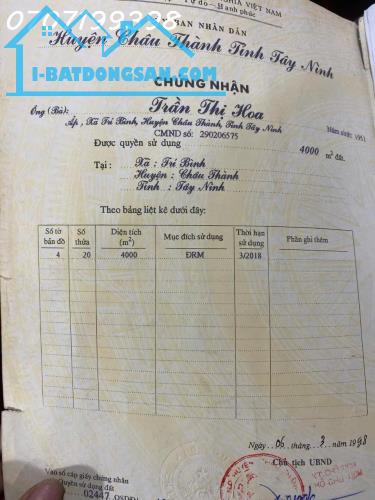 0707139338
NGHĨA VIỆT NAM
Tự do - Hạnh phúc
BAN NHÂN DÂN
Huyện Châu Thành Tỉnh Tây Ninh
I-BATDONGSAN.COM
CHỨNG NHẬN
Trần Thị Hoa
Ông (Bà):
Năm sinh: 1951
Ấp, Xã Trí Bình, Huyện Châu Thành, Tỉnh Tây Ninh
CMND số: 290206575
Được quyền sử dụng 4000 m² đất.
Tại : Xã : Trí Bình
Huyện : Châu Thành
Tỉnh : Tây Ninh
Theo bảng liệt kê dưới đây:
Số tờ bản đồ Số thửa Diện tích (m²) Mục đích sử dụng Thời hạn sử dụng Phần ghi thêm
4 20 4000 ĐRM 3/2018
Ngày 06 tháng 3 năm 1998
Chủ tịch UBND
Vào sổ cấp giấy chứng nhận
Quyền sử dụng đất
02447 QSDĐ/